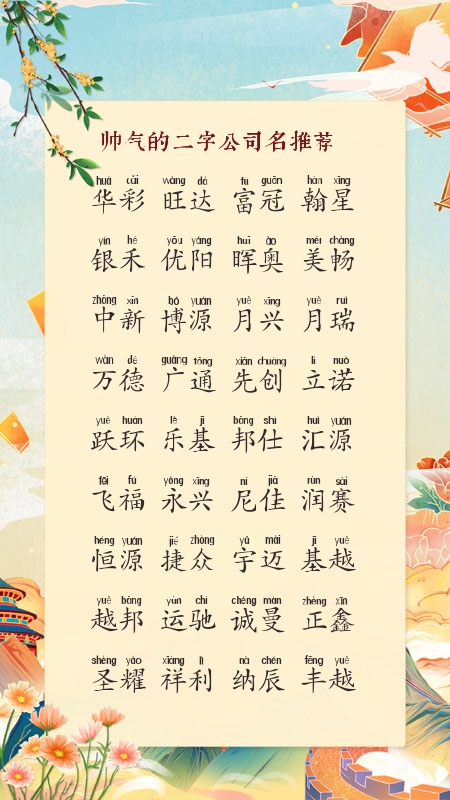 帅气的二字公司名推荐
huá cǎi wàng dá fù guān hàn xīng
华彩 旺达 富冠 翰星
yín hé yōu yáng huī ào měi chàng
银禾 优阳 晖奥 美畅
zhōng xīn bó yuán yuè xīng yuè ruì
中新 博源 月兴 月瑞
wàn dé guǎng tōng xiān chuàng lì nuò
万德 广通 先创 立诺
yuè huán lè jī bāng shì huì yuán
跃环 乐基 邦仕 汇源
fēi fú yǒng xīng ní jiā rùn sài
飞福 永兴 尼佳 润赛
héng yuán jié zhòng yǔ mài jī yuè
恒源 捷众 宇迈 基越
yuè bāng yùn chí chéng màn zhèng xīn
越邦 运驰 诚曼 正鑫
shèng yào xiáng lì nà chén fēng yuè
圣耀 祥利 纳辰 丰越